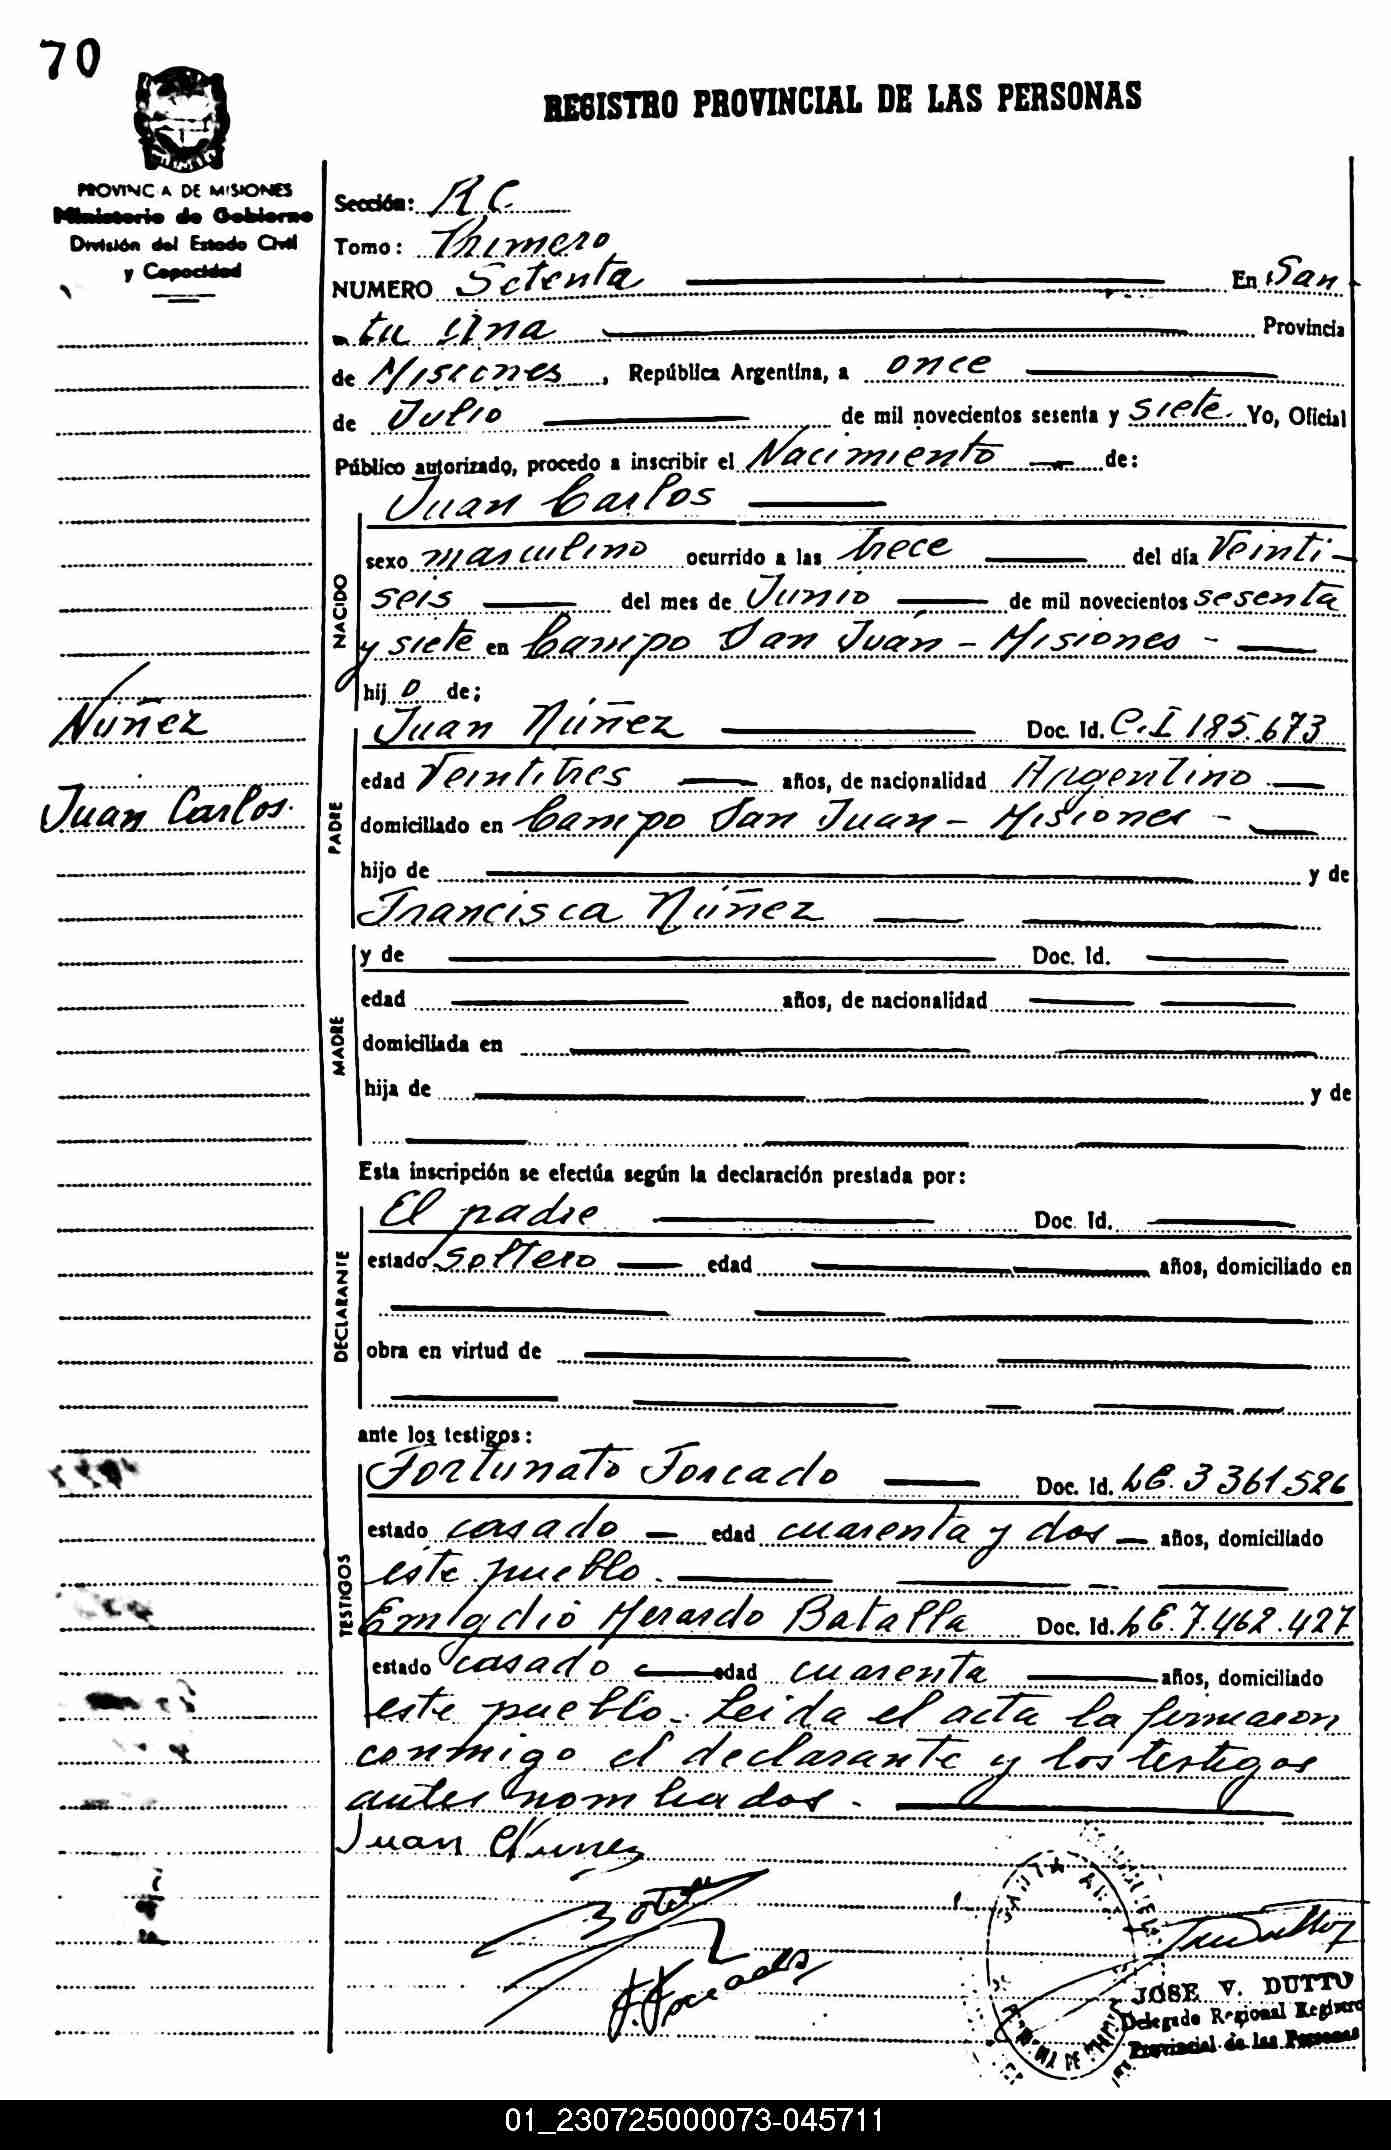 70
REGISTRO PROVINCIAL DE LAS PERSONAS
PROVINCIA DE MISIONES
Ministerio de Gobierno
División del Estado Civil
y Capacidad
Sección: R.C.
Tomo: Primero
NUMERO Setenta En San-
ta Ana Provincia
de Misiones, República Argentina, a once
de Julio de mil novecientos sesenta y siete. Yo, Oficial
Público autorizado, procedo a inscribir el Nacimiento de:
Juan Carlos
NACIDO
sexo masculino ocurrido a las trece del día Veinti-
seis del mes de Junio de mil novecientos sesenta
y siete en Campo San Juan - Misiones -
hijo de;
Núñez
Juan Carlos.
PADRE
Juan Núñez Doc. Id. C.I 185.673
edad Veintitres años, de nacionalidad Argentino
domiciliado en Campo San Juan - Misiones -
hijo de y de
Francisca Núñez
MADRE
y de Doc. Id.
edad años, de nacionalidad
domiciliada en
hija de y de
Esta inscripción se efectúa según la declaración prestada por:
DECLARANTE
El padre Doc. Id.
estado soltero edad años, domiciliado en
obra en virtud de
ante los testigos:
TESTIGOS
Fortunato Forcado Doc. Id. LE. 3 361.526
estado casado edad cuarenta y dos años, domiciliado
este pueblo.
Emigdio Merardo Batalla Doc. Id. LE. 7.462.427
estado casado edad cuarenta años, domiciliado
este pueblo. Leida el acta la firmaron
conmigo el declarante y los testigos
antes nombrados.
Juan Nunez
F. Forcado
SANTA ANA
JOSE V. DUTTO
Delegado Regional Registro
Provincial de las Personas
01_230725000073-045711